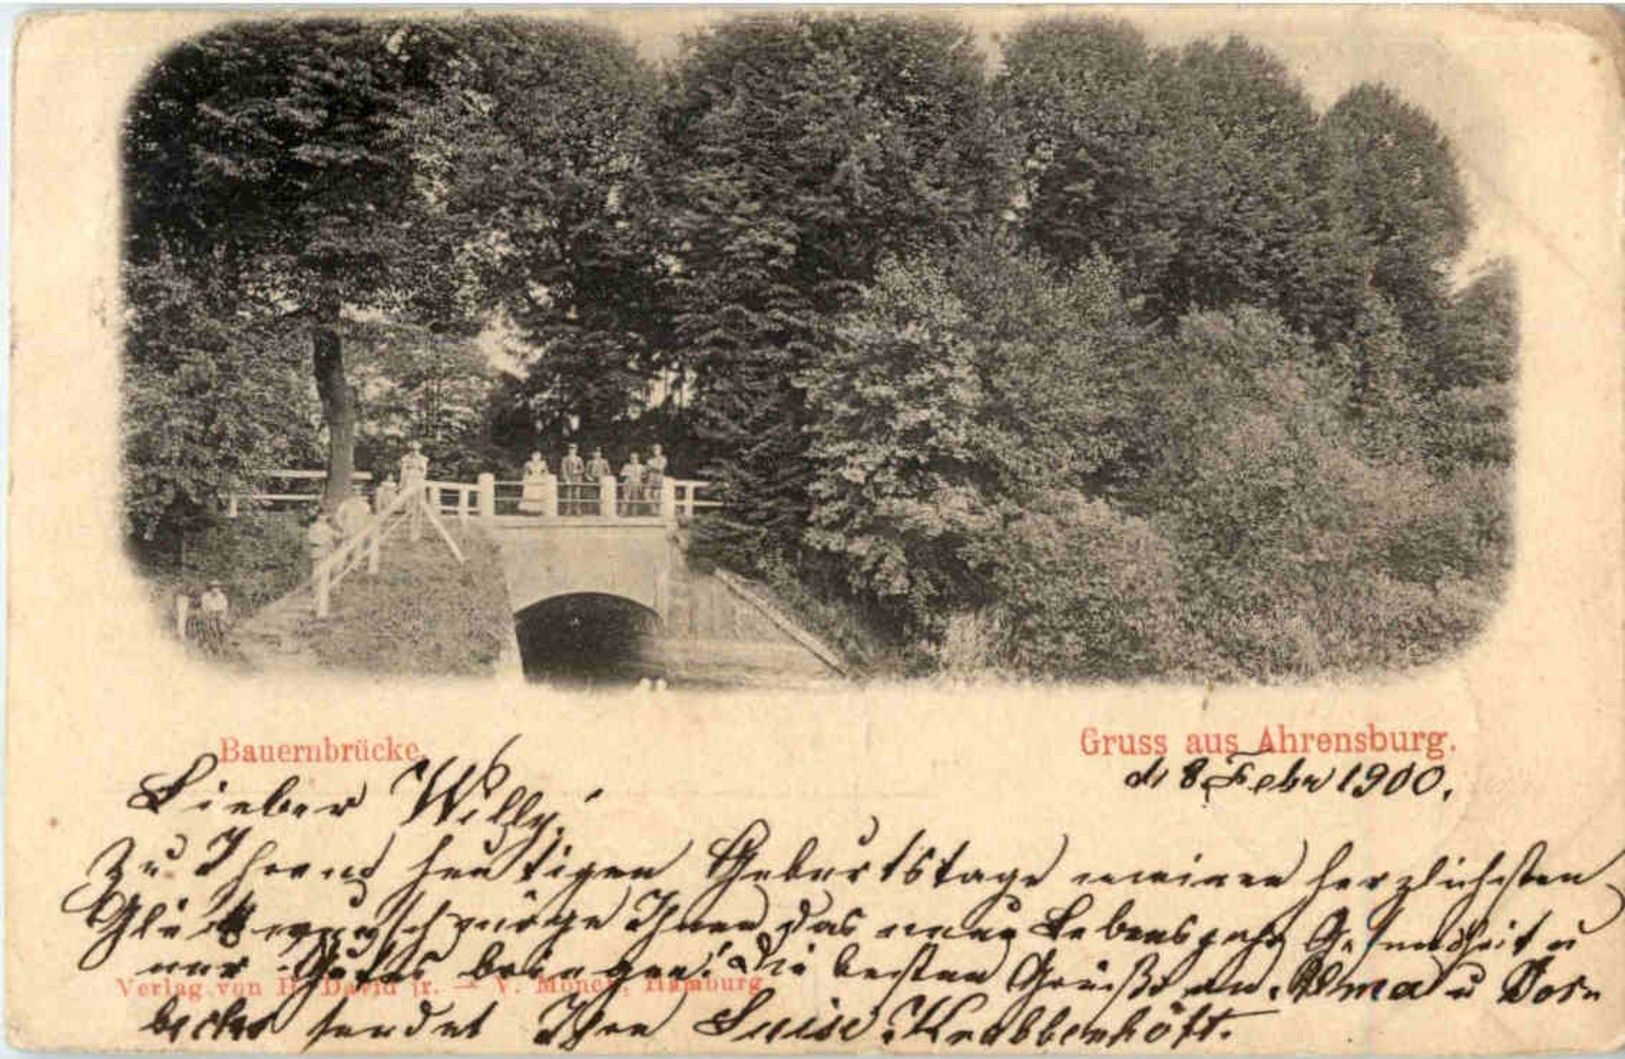 Bauernbrücke.
Gruss aus Ahrensburg.
d. 8 Febr 1900.
Lieber Willy!
Zu Ihrem heutigen Geburtstage meinen herzlichsten
Glückwunsch möge Ihnen das neue Lebensjahr Gesundheit u
nur Gutes bringen! Die besten Grüsse an Oma u
Verlag von H. David jr. — V. Monch, Hamburg
sendet Ihre Luise Krabbenhöft.